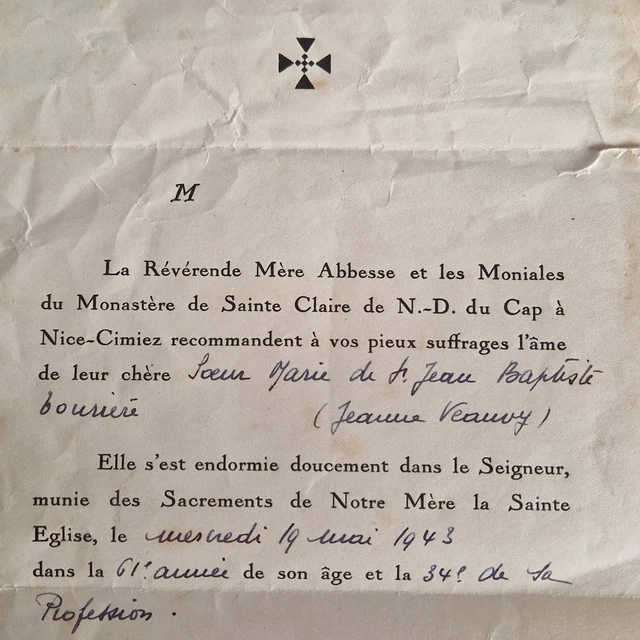 M
La Révérende Mère Abbesse et les Moniales
du Monastère de Sainte Claire de N.-D. du Cap à
Nice-Cimiez recommandent à vos pieux suffrages l'âme
de leur chère Sœur Marie de St Jean Baptiste
(Jeanne Veauvy)
Elle s'est endormie doucement dans le Seigneur,
munie des Sacrements de Notre Mère la Sainte
Eglise, le mercredi 19 mai 1943
dans la 61e année de son âge et la 34e de sa
Profession.